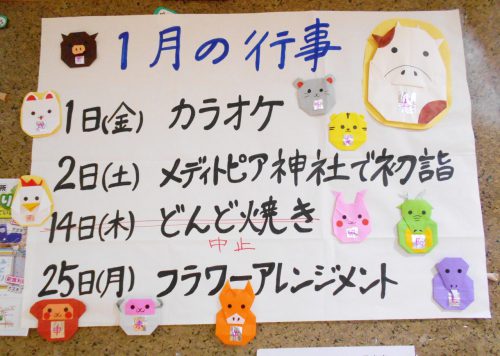 1月の行事
1日(金) カラオケ
2日(土) メディトピア神社で初詣
14日(木) どんど焼き
中止
25日(月) フラワーアレンジメント
申